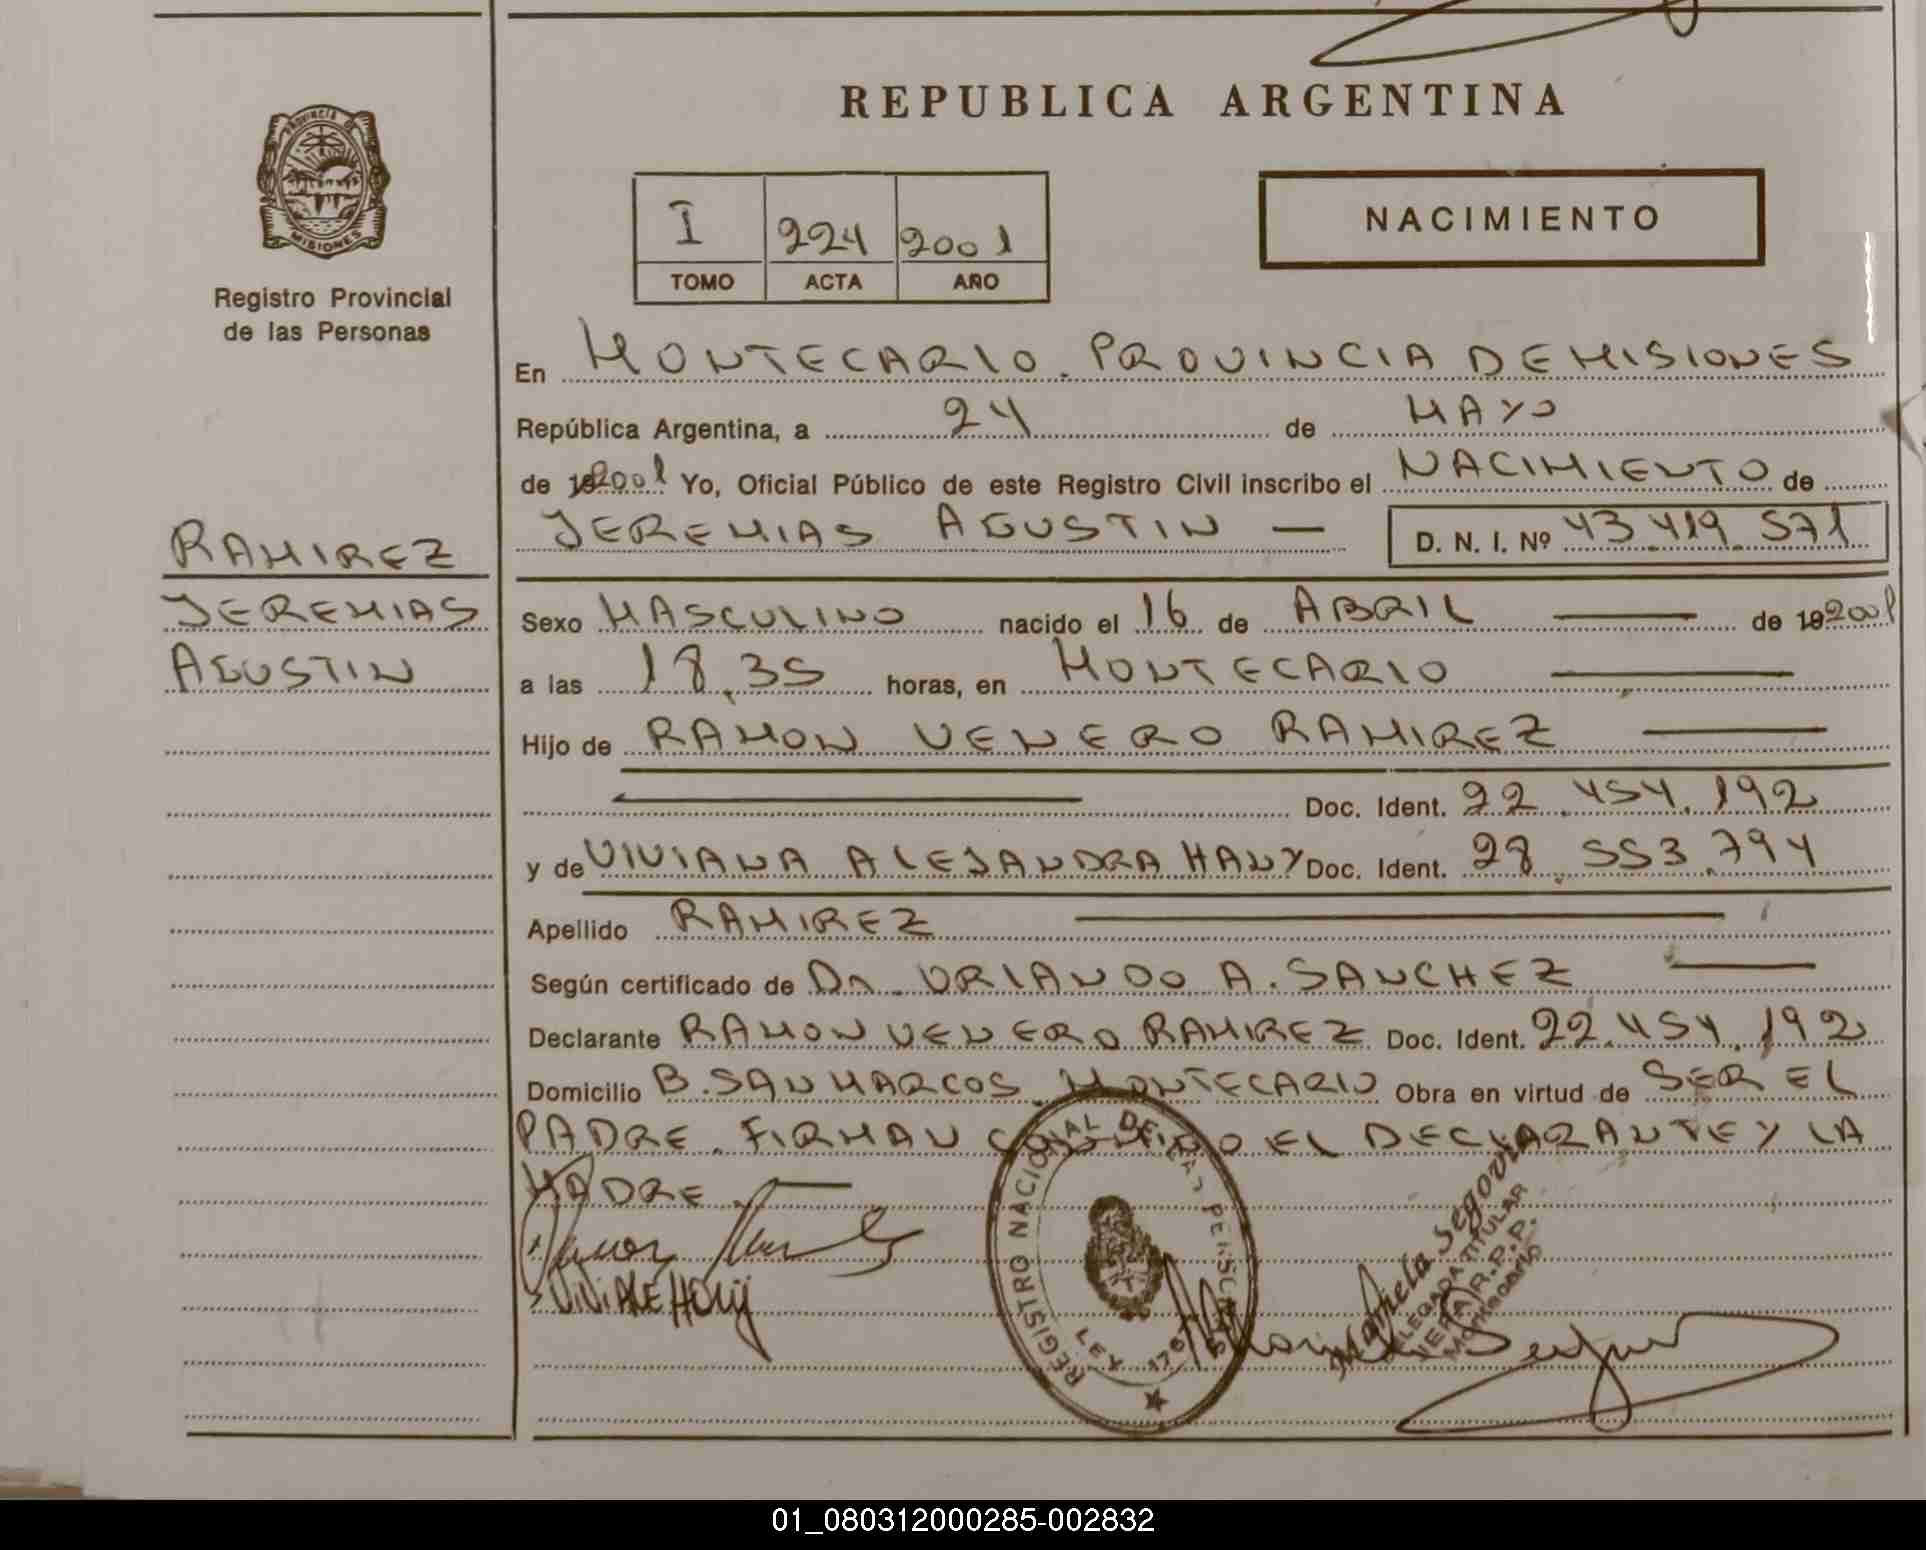 REPUBLICA ARGENTINA
PROVINCIA DE
MISIONES
Registro Provincial
de las Personas
I 224 2001
TOMO ACTA AÑO
NACIMIENTO
En MONTECARLO. PROVINCIA DE MISIONES
República Argentina, a 24 de MAYO
de 192001 Yo, Oficial Público de este Registro Civil inscribo el NACIMIENTO de
JEREMIAS AGUSTIN — D. N. I. Nº 43.419.571
RAMIREZ
JEREMIAS
AGUSTIN
Sexo MASCULINO nacido el 16 de ABRIL de 192001
a las 18,35 horas, en MONTECARLO
Hijo de RAMON VENERO RAMIREZ
Doc. Ident. 22.454.192
y de VIVIANA ALEJANDRA HANY Doc. Ident. 28.553.794
Apellido RAMIREZ
Según certificado de Dr. ORLANDO A. SANCHEZ
Declarante RAMON VENERO RAMIREZ Doc. Ident. 22.454.192
Domicilio B. SAN MARCOS. MONTECARLO Obra en virtud de SER EL
PADRE. FIRMAN CONMIGO EL DECLARANTE Y LA
MADRE.
REGISTRO NACIONAL DE LAS PERSONAS
LEY
Segovia
DELEGADA TITULAR
R.P.P.
Montecarlo
01_080312000285-002832